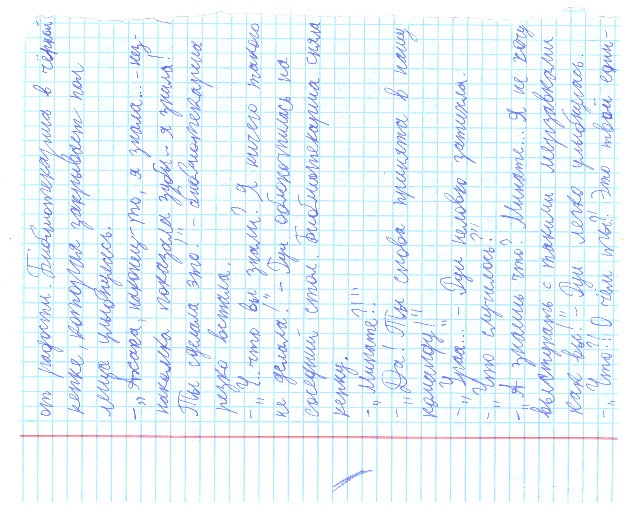 от радости. Библиотекарша в чёрной
кепке, которая закрывает пол
лица улыбнулась.
-„Ахаха, наконец-то, я знала... - нез-
накомка показала зубы - я знала!
Ты сделала это!" - библиотекарша
резко встала.
-„У.. что вы знали? Я ничего такого
не делала!" - Гуи облокотилась на
соседний стол. Библиотекарша сняла
кепку.
-„Минате?!"
-„Да! Ты снова принята в нашу
команду!"
-„Ураа... - Гуи неловко затихла.
-„Что случилось?"
-„А знаешь что? Минате... Я не хочу
выступать с такими мерзавками
как вы!" - Гуи легко улыбнулась.
-„Что?! О чём ты?! Это твой един-